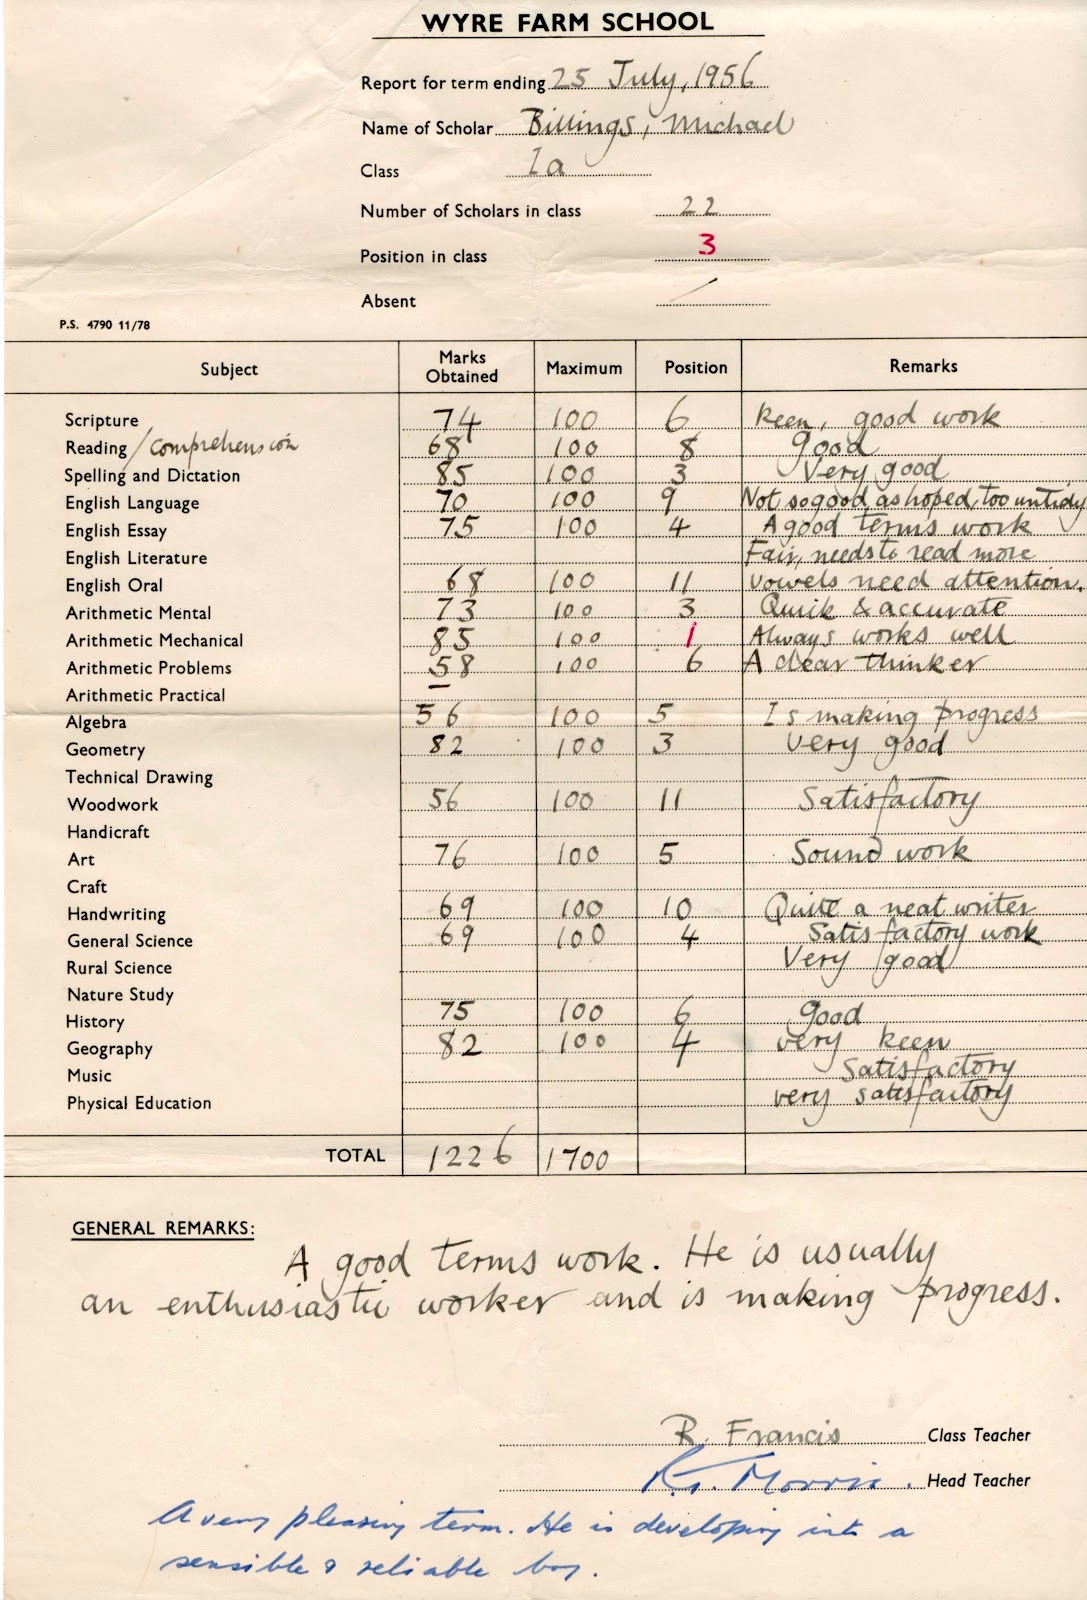 WYRE FARM SCHOOL
Report for term ending 25 July, 1956
Name of Scholar Billings, Michael
Class 1a
Number of Scholars in class 22
Position in class 3
Absent /
P.S. 4790 11/78
Subject Marks Obtained Maximum Position Remarks
Scripture 74 100 6 keen, good work
Reading / comprehension 68 100 8 Good
Spelling and Dictation 85 100 3 Very good
English Language 70 100 9 Not so good as hoped, too untidy
English Essay 75 100 4 A good terms work
English Literature Fair, needs to read more
English Oral 68 100 11 Vowels need attention.
Arithmetic Mental 73 100 3 Quick & accurate
Arithmetic Mechanical 85 100 1 Always works well
Arithmetic Problems 58 100 6 A clear thinker
Arithmetic Practical –
Algebra 56 100 5 Is making progress
Geometry 82 100 3 Very good
Technical Drawing
Woodwork 56 100 11 Satisfactory
Handicraft
Art 76 100 5 Sound work
Craft
Handwriting 69 100 10 Quite a neat writer
General Science 69 100 4 Satisfactory work
Rural Science Very good
Nature Study
History 75 100 6 Good
Geography 82 100 4 very keen
Music Satisfactory
Physical Education very satisfactory
TOTAL 1226 1700
GENERAL REMARKS:
A good terms work. He is usually
an enthusiastic worker and is making progress.
R. Francis Class Teacher
Morris. Head Teacher
A very pleasing term. He is developing into a
sensible & reliable boy.